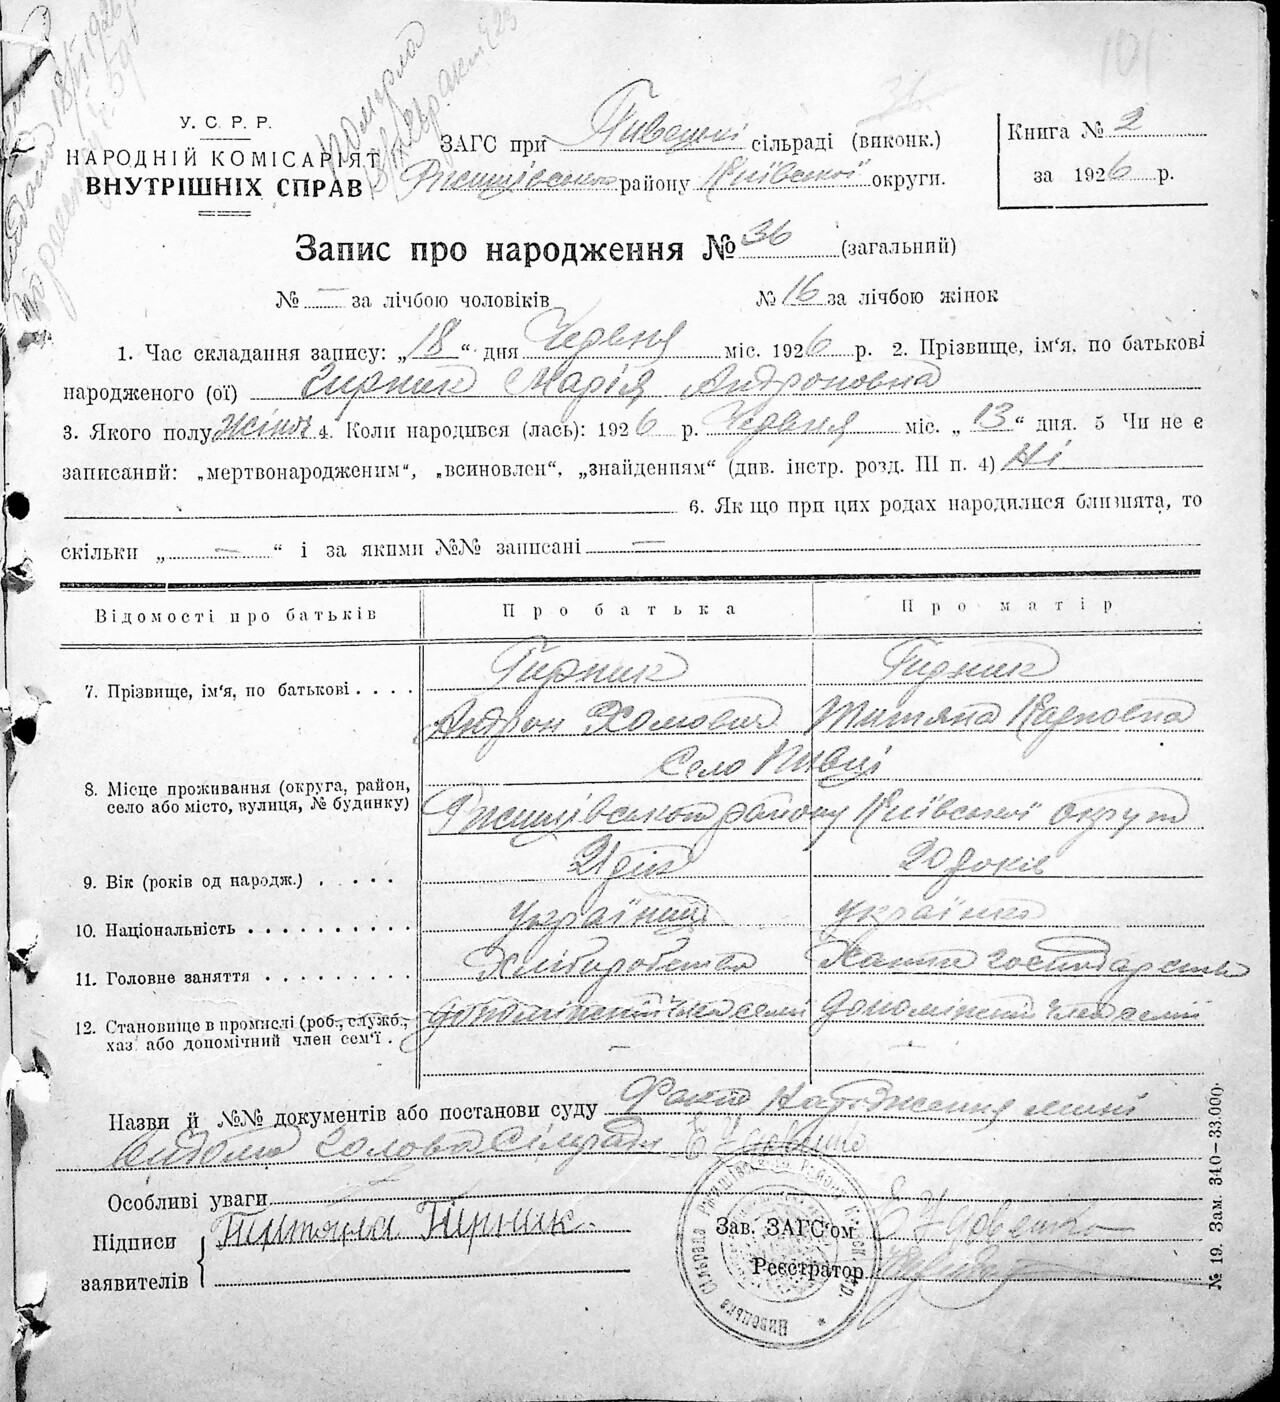 101
померла
У. С. Р. Р.
НАРОДНІЙ КОМІСАРІЯТ
ВНУТРІШНІХ СПРАВ
ЗАГС при Пивецькі сільраді (виконк.)
Ржищівського району Київської округи.
Книга № 2
за 1926 р.
Запис про народження № 36 (загальний)
№ — за лічбою чоловіків № 16 за лічбою жінок
1. Час складання запису: „18“ дня Червня міс. 1926 р. 2. Прізвище, ім‘я, по батькові
народженого (ої) Гирник Марія Андроновна
3. Якого полу жіноч 4. Коли народився (лась): 1926 р. Червня міс. „13“ дня. 5 Чи не є
записаний: „мертвонародженим“, „всиновлен“, „знайденням“ (див. інстр. розд. III п. 4) Ні
6. Як що при цих родах народилися близнята, то
скільки „ — “ і за якими №№ записані —
Відомості про батьків Про батька Про матір
7. Прізвище, ім‘я, по батькові . . . . Гирник Гирник
Андрон Хомович Титяна Карповна
Село Пивці
8. Місце проживання (округа, район,
село або місто, вулиця, № будинку) Ржищівського району Київської округи
9. Вік (років од народж.) . . . . . 21 рік 20 років
10. Національність . . . . . . . . . . Українець українка
11. Головне заняття . . . . . . . . Хліборобство Хатнє господарство
12. Становище в промислі (роб., служб.,
хаз. або допомічний член сем‘ї . допомічний член семії допомічний член семії
— —
Назви й №№ документів або постанови суду Факт народження мині
відомий Голова Сільради
Особливі уваги
Підписи
заявителів
Гирник
Зав. ЗАГС‘ом
Реєстратор
Пивецька Сільрада Ржищівського району
№ 19. Зам. 340–33.000.